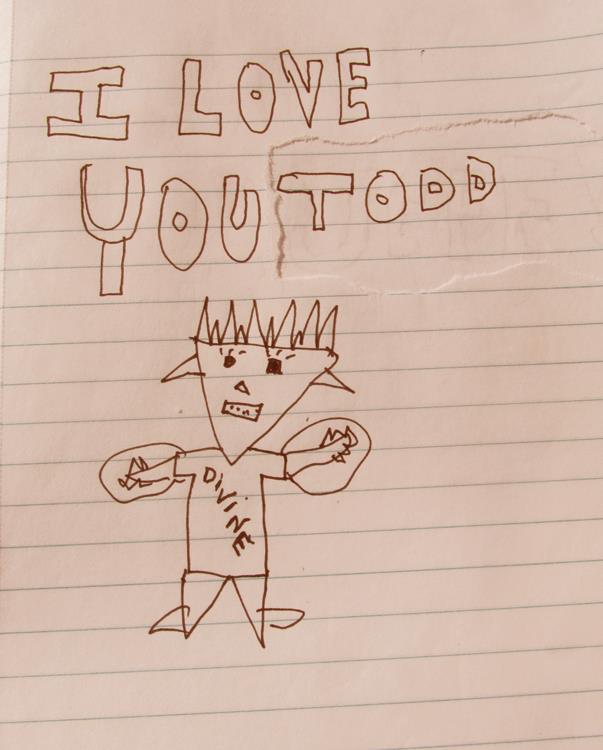 I LOVE
YOU TODD
DIVINE